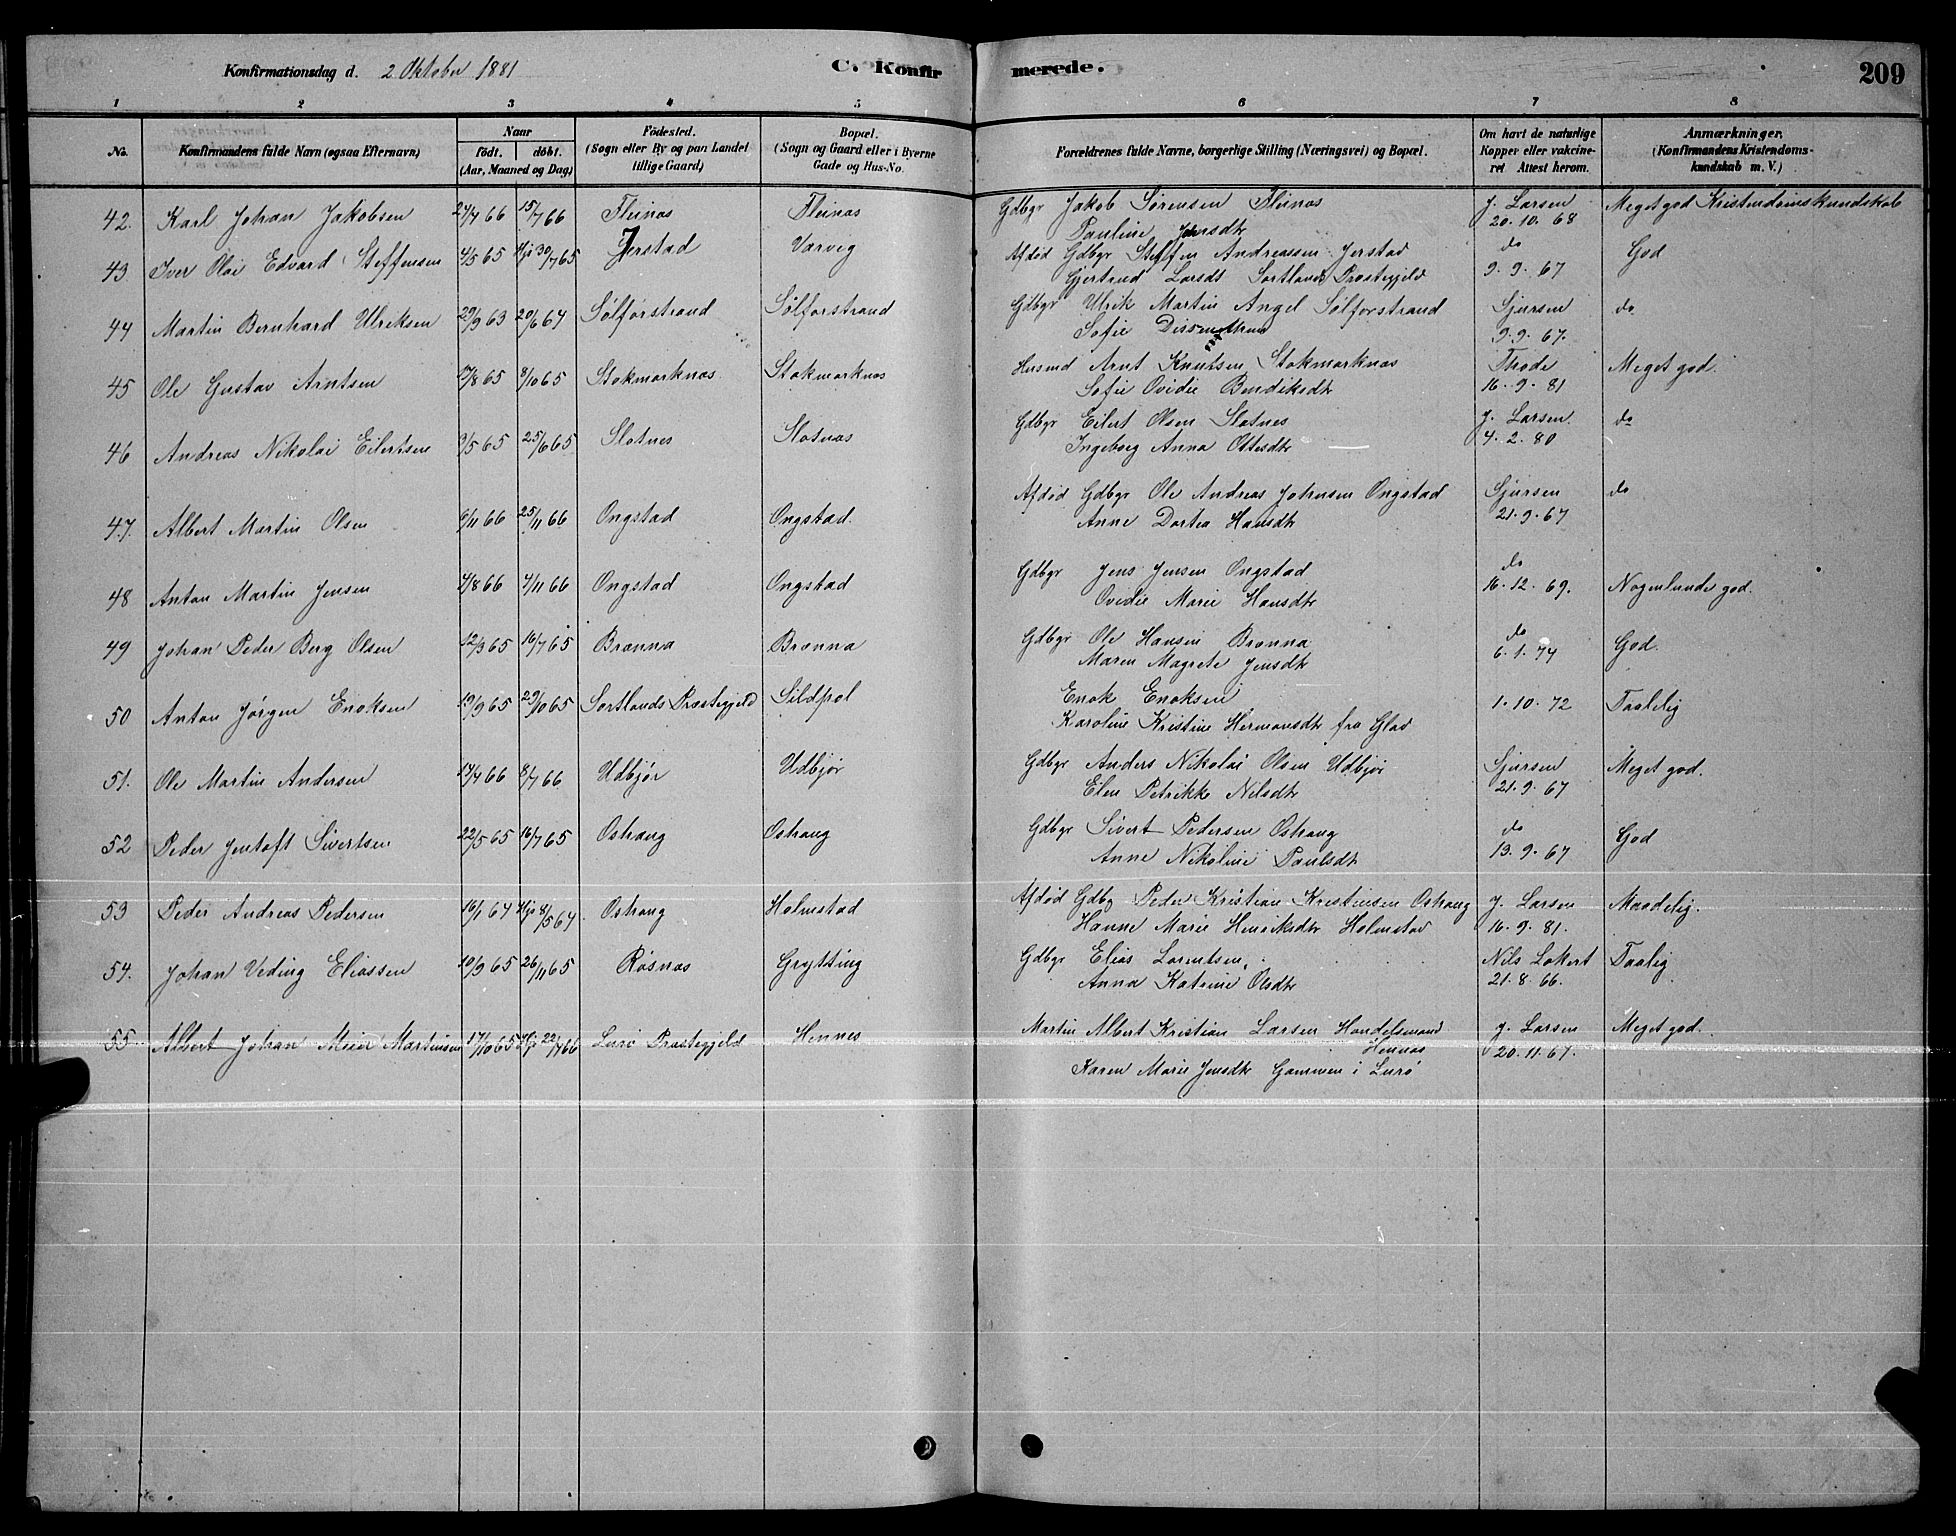 Konfirmationsdag d. 2 Oktober 1881 C. Konfirmerede. 209
1 2 3 4 5 6 7 8
No. Konfirmandens fulde Navn (ogsaa Efternavn) Naar født. døbt. (Aar, Maaned og Dag) Fødested. (Sogn eller By og paa Landet tillige Gaard) Bopæl. (Sogn og Gaard eller i Byerne Gade og Hus-No. Forældrenes fulde Navne, borgerlige Stilling (Næringsvei) og Bopæl. Om havt de naturlige Kopper eller vakcineret Attest herom. Anmærkninger. (Konfirmandens Kristendomskundskab m. V.)
42. Karl Johan Jakobsen 24/4 66 15/7 66 Fleinæs Fleinæs Gdbgr Jakob Sørensen Fleinæs J. Larsen Meget god Kristendomskundskab
Pauline Jensdtr 20.10.68
43 Iver Olai Edvard Steffensen 4/5 65 Hj 30/7 65 Jerstad Varvig Afdød Gdbgr Steffen Andreassen Jerstad do God
Gjertrud Larsdt Sortlands Præstegjeld 9.9.67
44 Martin Bernhard Ulriksen 29/9 63 20/6 64 Sølforstrand Sølforstrand Gdbgr Ulrik Martin Angel Sølforstrand Sjursen do
Sofie 9.9.67.
45 Ole Gustav Arntsen 17/8 65 8/10 65 Stokmarknæs Stokmarknæs Husmd Arnt Knutsen Stokmarknæs Thode Meget god.
Sofie Ovidie Bendiksdtr 16.9.81
46 Andreas Nikolai Eilertsen 9/5 65 25/6 65 Slotnes Slotnæs Gdbgr Eilert Olsen Slotnes J. Larsen. do
Ingeborg Anna Ottesdtr 4.2.80
47. Albert Martin Olsen 6/11 66 25/11 66 Ongstad Ongstad. Afdød Gdbgr Ole Andreas Johnsen Ongstad Sjursen do
Anne Dortea Hansdtr 21.9.67
48 Anton Martin Jensen 4/8 66 4/11 66 Ongstad Ongstad Gdbgr Jens Jensen Ongstad do
Ovidie Marie Hansdtr 16.12.69. Nogenlunde god.
49 Johan Peder Berg Olsen 12/3 65 16/7 65 Brænna Brænna Gdbgr Ole Hansen Brænna do God.
Maren Magrete Jensdtr 6.1.74
50 Anton Jørgen Enoksen 19/9 65 29/10 65 Sortlands Præstegjeld Sildpol Enok Enoksen 1.10.72 Taalelig
Karoline Kristine Hermansdtr fra Glad
51. Ole Martin Andersen 14/4 66 8/7 66 Udbjør Udbjør Gdbgr Anders Nikolai Olsen Udbjør Sjursen Meget god.
Elen Petrikke Nilsdtr 21.9.67
52 Peder Jentoft Sivertsen 22/5 65 16/7 65 Ostrang Ostrang Gdbgr Sivert Pedersen Ostrang do God
Anne Nikoline Paulsdtr 13.9.67
53 Peder Andreas Pedersen 16/1 64 Hj 8/5 64 Ostrang Holmstad Afdød Gdbg Peder Kristian Kristensen Ostrang J. Larsen Maadelig.
Hanne Marie Henriksdtr Holmstad 16.9.81.
54. Johan Veding Eliassen 10/9 65 26/11 65 Røsnæs Grytting Gdbgr Elias Lorentsen Nils Lokert Taalig
Anna Katrine Olsdtr 21.8.66.
55 Albert Johan Meier Martinsen 17/10 65 Hj 22/4 66 Lurø Præstegjeld Hennes Martin Albert Kristian Larsen Handelsmand J. Larsen Meget god.
Hennæs 20.11.67.
Karen Marie Jensdtr Gammen i Lurø